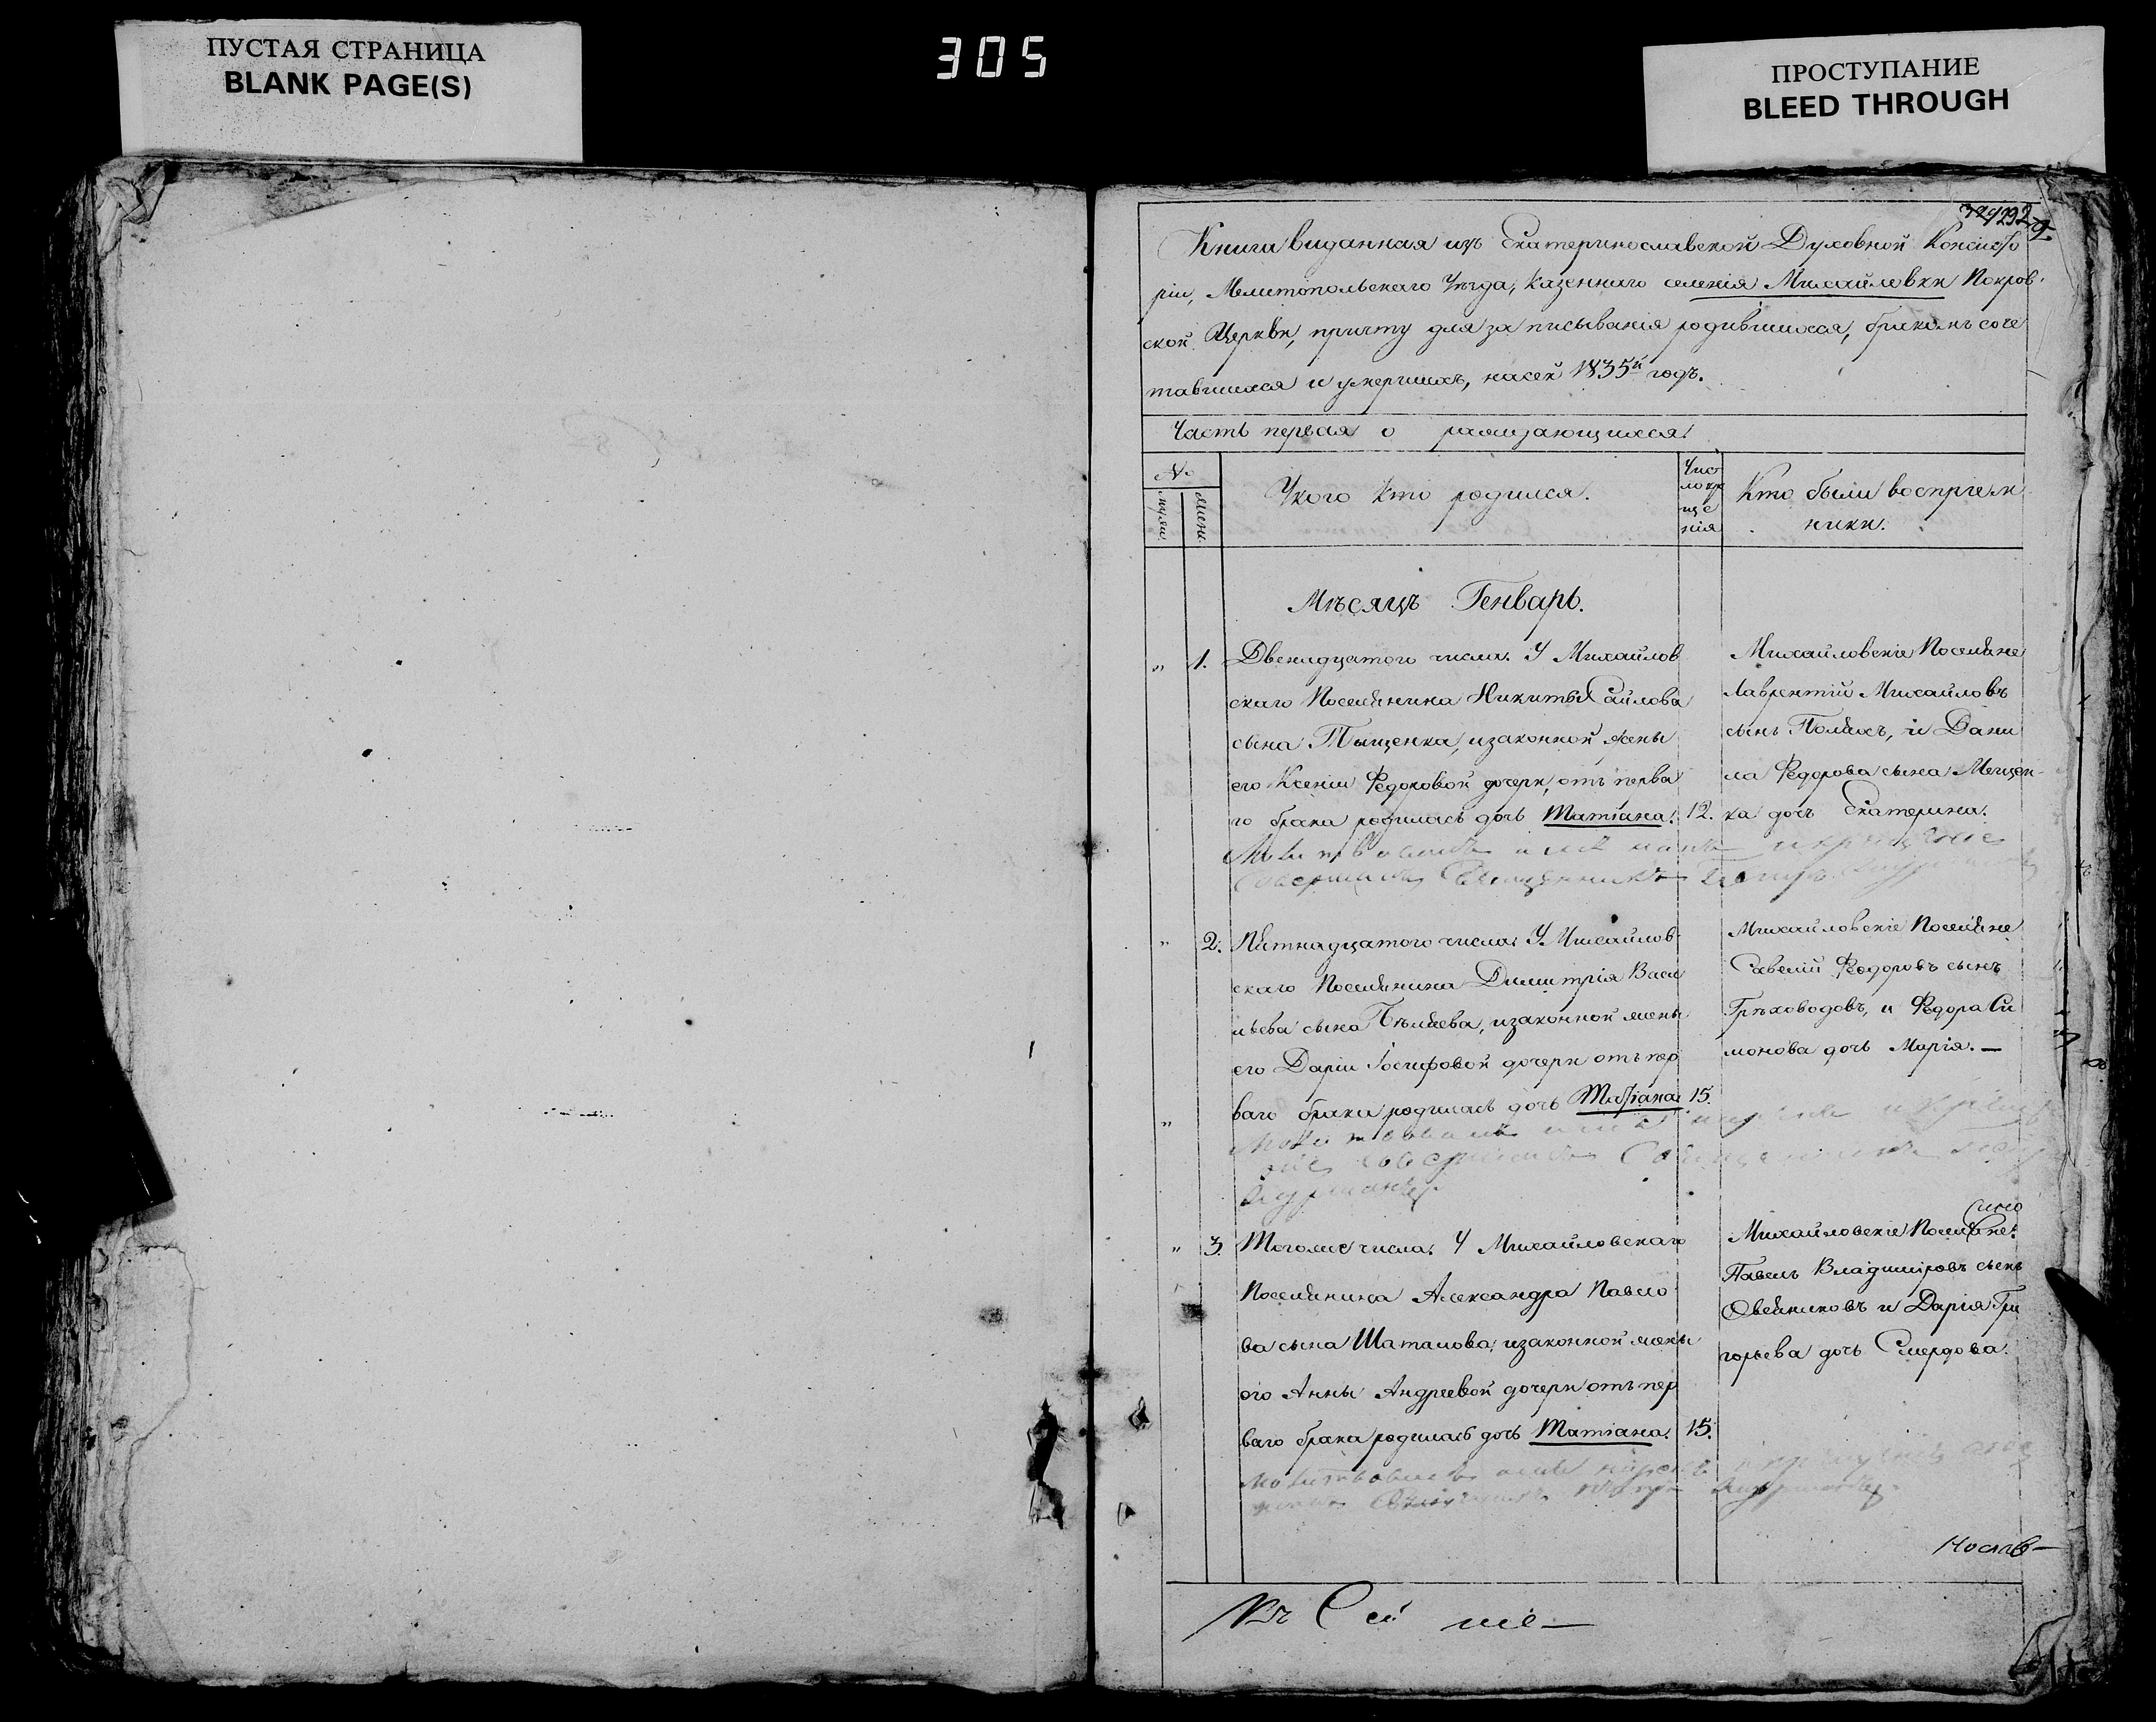 ПУСТАЯ СТРАНИЦА
BLANK PAGE(S)
305
ПРОСТУПАНИЕ
BLEED THROUGH
Книга виданная изъ Екатеринославской Духовной Консисто
ріи, Мелитопольскаго Уѣзда, казеннаго селенія Михайловки Покров-
ской Церкви, причту для записыванія родившихся, бракомъ соче
тавшихся и умершихъ, насей 1835й годъ.
Часть первая о раждающихся.
№
муж.
женс.
Укого кто родился.
Чис
ло кр
ще
нія
Кто были воспріем
ники.
Мѣсяцъ Генварь.
" 1. Двенадцатого числа. У Михайлов
скаго Поселянина Никиты
сына Тыщенка, изаконной жены
его Ксеніи Федоровой дочери, отъ перва
го брака родилась дочь Татіана. 12.
Михайловскіе Поселяне
Лаврентій Михайловъ
сынъ Поляхъ, и Дани
ла Федорова сына Мещен-
ка дочь Екатерина.
Молитвовалъ имя и крещеніе
совершилъ Священникъ
" 2. Пятнадцатого числа. У Михайлов-
скаго Поселянина Димитрія Васи
льева сына Бѣляева, изаконной жены
его Даріи Іосифовой дочери отъ пер
ваго брака родилась дочь Татіана 15.
Михайловскіе Поселяне
Савелій Феодоровъ сынъ
Грѣховодовъ, и Федора Си
монова дочь Марія. —
"
Молитвовалъ имя нарекъ и крещен
іе совершилъ Священникъ
" 3. Тогоже числа. У Михайловскаго
Поселянина Александра Павло
ва сына Шаталова, изаконной жены
его Анны Андреевой дочери отъ пер
ваго брака родилась дочь Татіана. 15.
Михайловскіе Поселяне.
Павелъ Владиміровъ сынъ
Овсянниковъ и Дарія Гри
горьева дочь Смердова.
Молитвовалъ имя нарекъ и крещеніе
Священникъ
Къ Сей